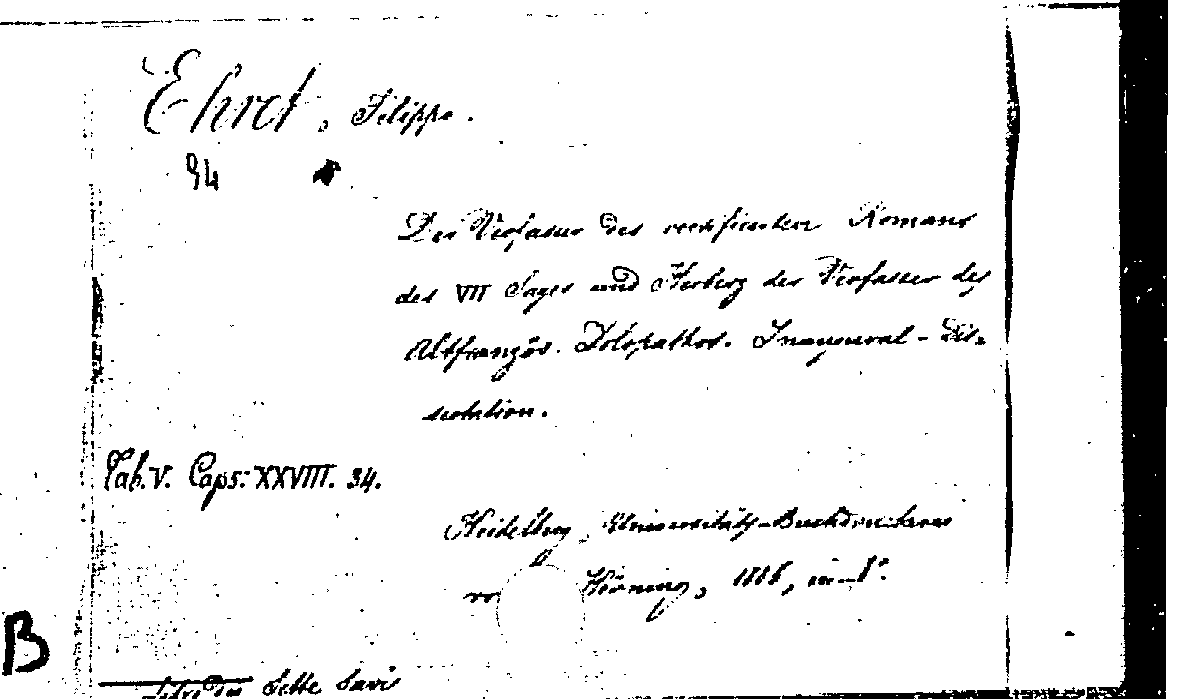 Ehret, Filippo.
94
Der Verfasser des versificirten Romans
des VII Sages und Herberz der Verfasser des
Altfranzös. Dolopathos. Inaugural-Dis-
sertation.
Tab. V. Caps: XXVIII. 34.
Heidelberg, Universitäts-Buchdruckerei
von Hörning, 1886, in-8°.
B
Libro dei Sette Savi